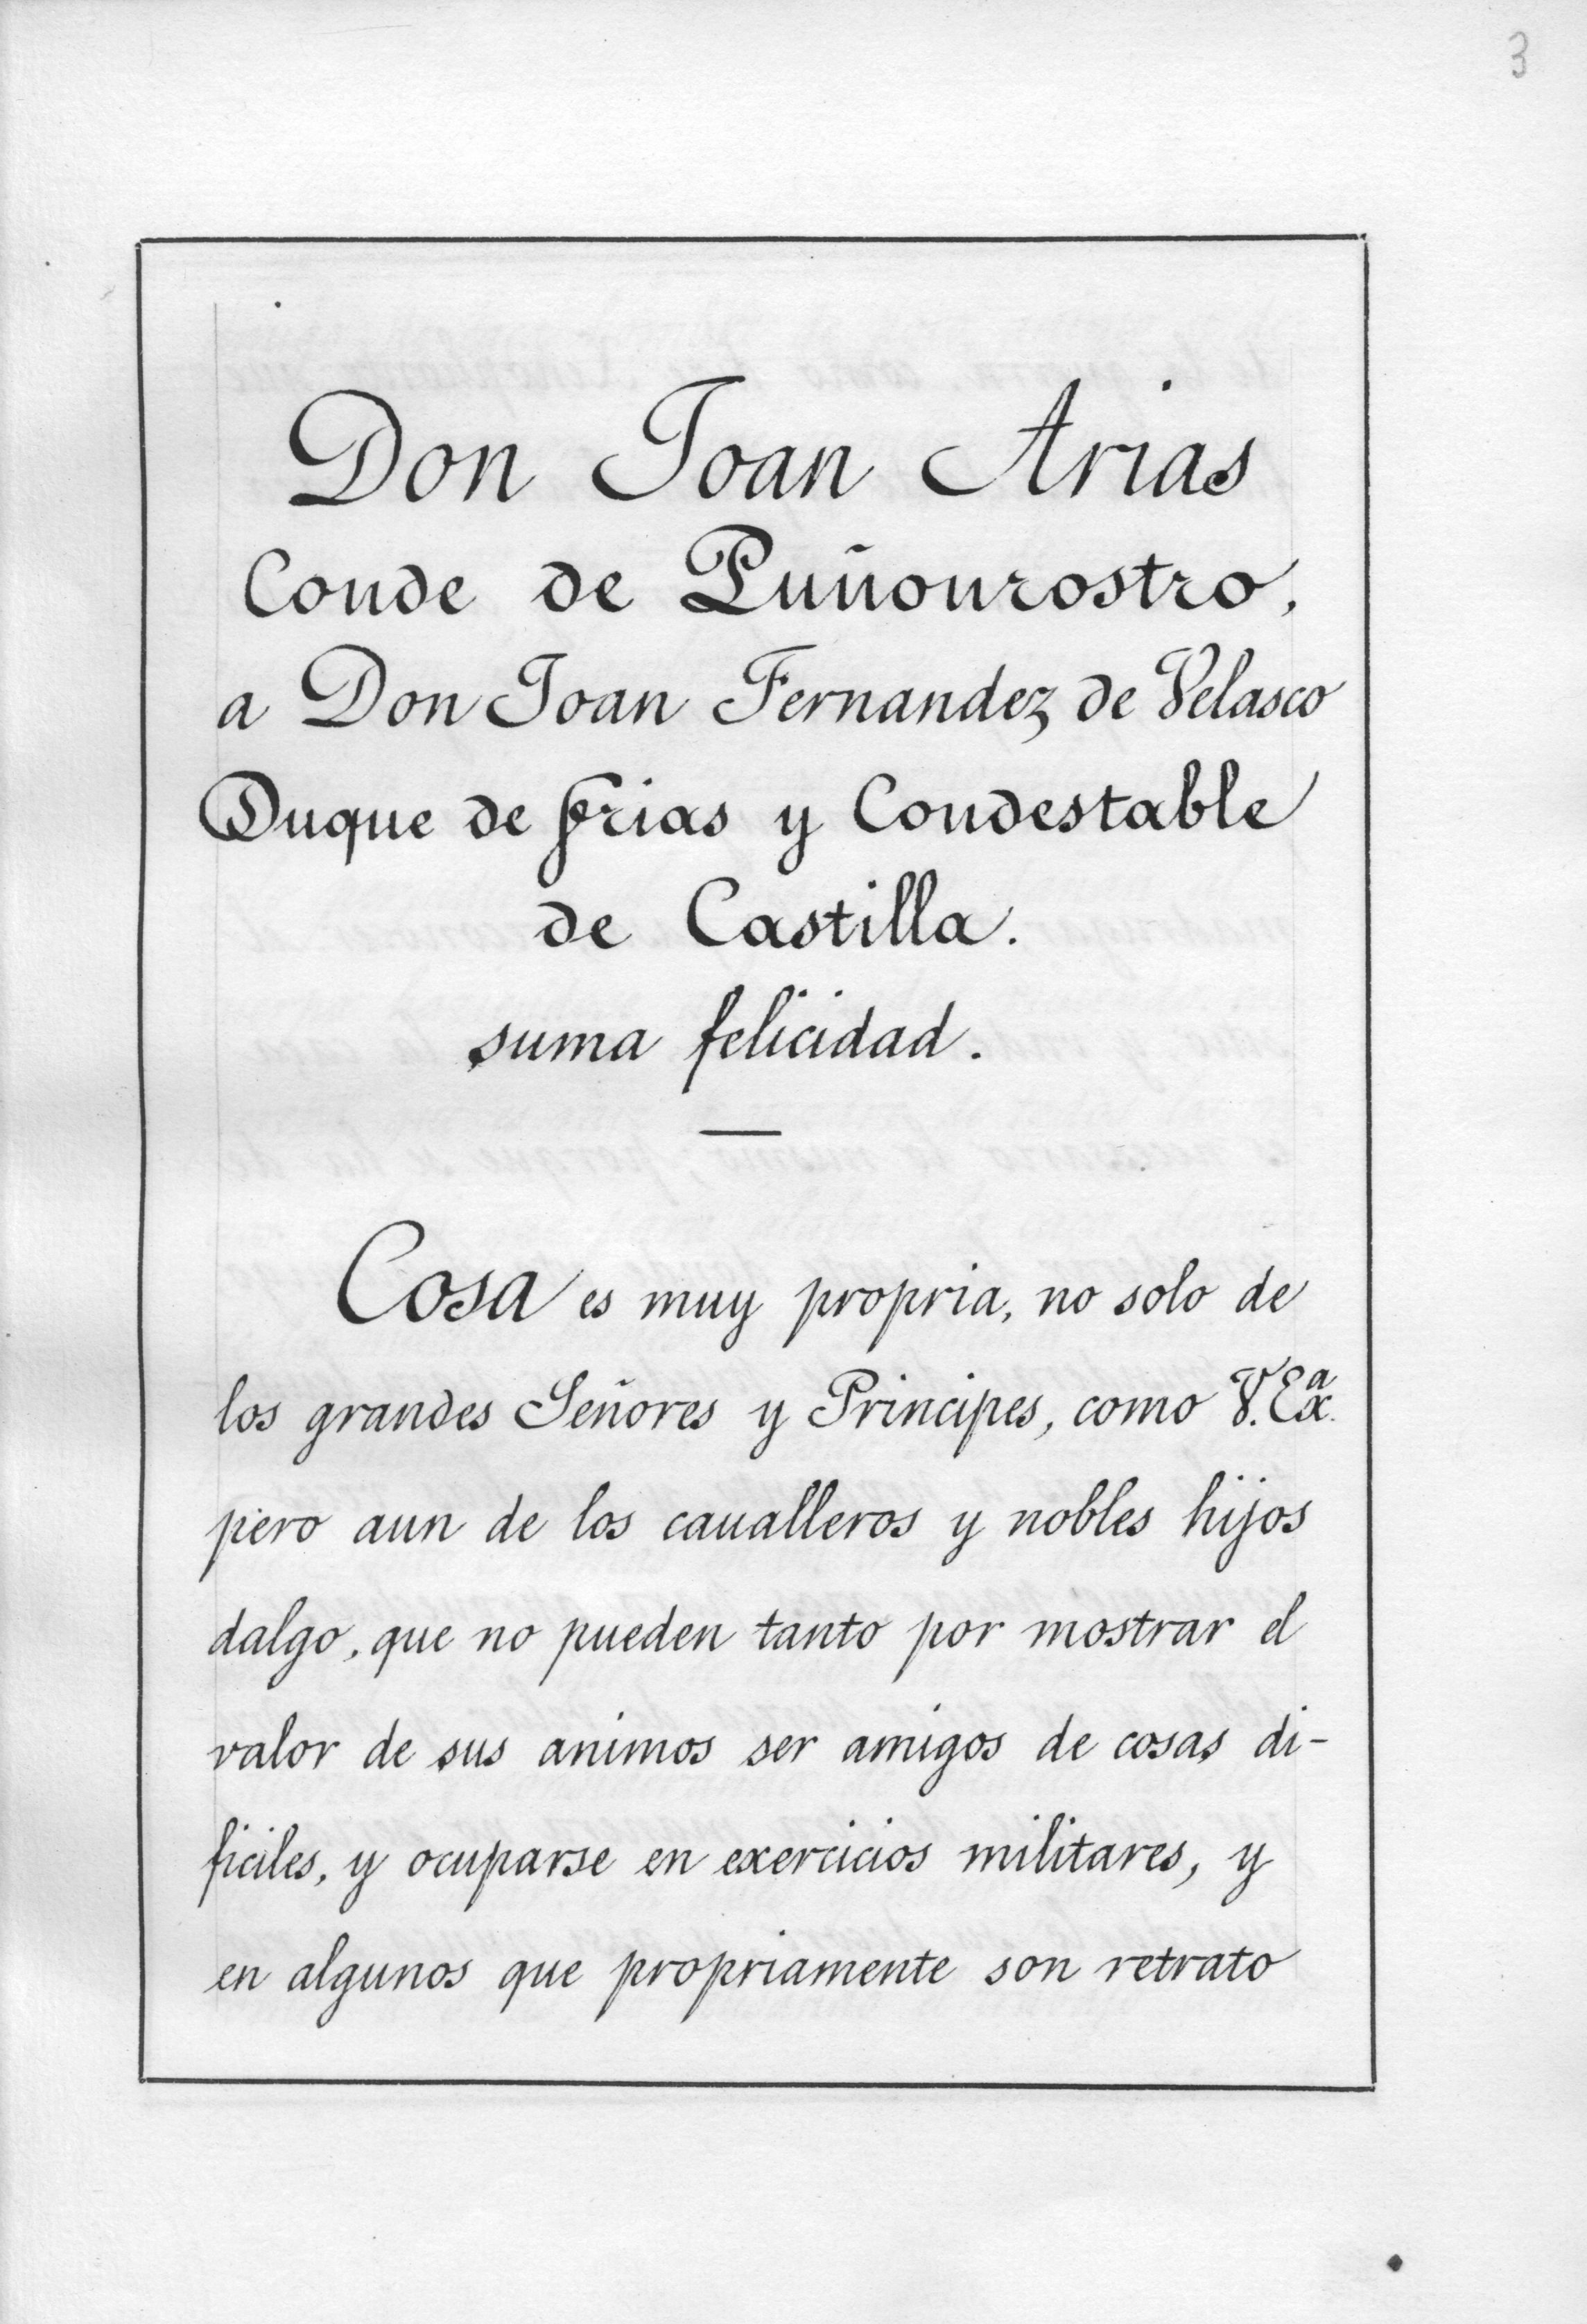 3
Don Joan Arias
Conde de Puñonrostro,
a Don Joan Fernandez de Velasco
Duque de Frias y Condestable
de Castilla.
suma felicidad.
Cosa es muy propria, no solo de
los grandes Señores y Principes, como V. Exª.
pero aun de los caualleros y nobles hijos
dalgo, que no pueden tanto por mostrar el
valor de sus animos ser amigos de cosas di-
ficiles, y ocuparse en exercicios militares, y
en algunos que propriamente son retrato